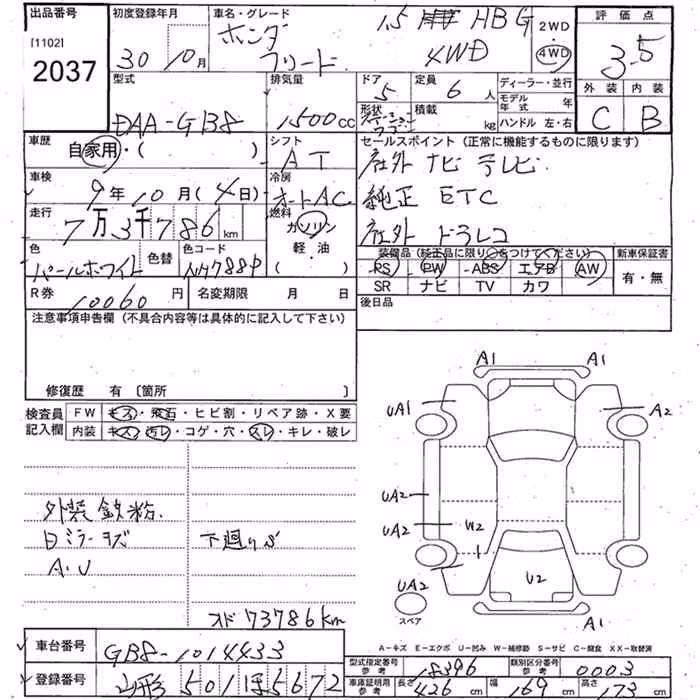 出品番号
[1102]
2037
初度登録年月
30年10月
車名・グレード
ホンダ
フリード
1.5 HBG
4WD
2WD
・
4WD
評価点
3.5
外装 内装
C B
型式
DAA-GB8
排気量
1500cc
ドア
5
定員
6人
形状
積載
kg
ディーラー・並行
モデル年式 年
ハンドル 左・右
車歴
自家用・( )
シフト
AT
セールスポイント（正常に機能するものに限ります）
社外 ナビ テレビ
純正 ETC
社外 ドラレコ
車検
9年10月(4日)
冷房
オートAC
走行
7万3千786km
燃料
ガソリン
軽・油
・( )
色
パールホワイト
色替
色コード
NH788P
装備品（純正品に限り○をつけてください）
PS PW ABS エアB AW
SR ナビ TV カワ
新車保証書
有・無
R券
10060円
名変期限 月 日
後日品
注意事項申告欄（不具合内容等は具体的に記入して下さい）
修復歴 有〔箇所 〕
検査員
記入欄
FW キズ・飛石・ヒビ割・リペア跡・X要
内装 キズ・汚レ・コゲ・穴・スレ・キレ・破レ
外装鉄粉
日ミラーキズ
A.U
下廻りS
オド73786km
A1 A1
UA1 A2
UA2
UA2 W2
1
UA2 U2
スペア
A1
A－キズ E－エクボ U－凹み W－補修跡 S－サビ C－腐食 XX－取替済
車台番号
GB8-1014433
登録番号
山形 501 ほ 5672
型式指定番号
参考
18396
類別区分番号
参考
0003
車庫証明用
参考
長さ
426cm
幅
169cm
高さ
173cm